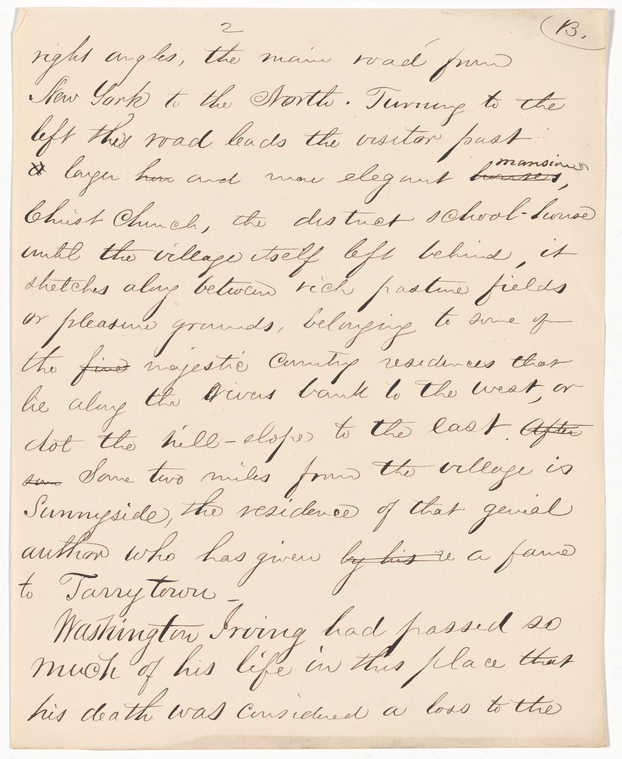 2
B.
right angles, the main road from
New York to the North. Turning to the
left this road leads the visitor past
larger and more elegant houses, mansions
Christ Church, the district school-house
until the village itself left behind, it
stretches along between rich pasture fields
or pleasure grounds, belonging to some of
the fine majestic Country residences that
lie along the rivers bank to the west, or
dot the hill-slope to the east. After
som Some two miles from the village is
Sunnyside, the residence of that genial
author who has given by his a fame
to Tarrytown_
Washington Irving had passed so
much of his life in this place that
his death was considered a loss to the